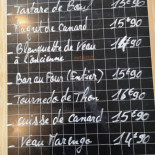 Tartare de Bœuf 15€90
Magret de Canard 15€90
Blanquette de Veau 14€90
à l'ancienne
Bar au Four (Entier) 15€90
Tournedos de Thon 16€90
Cuisse de Canard 15€90
Veau Marengo 14€90